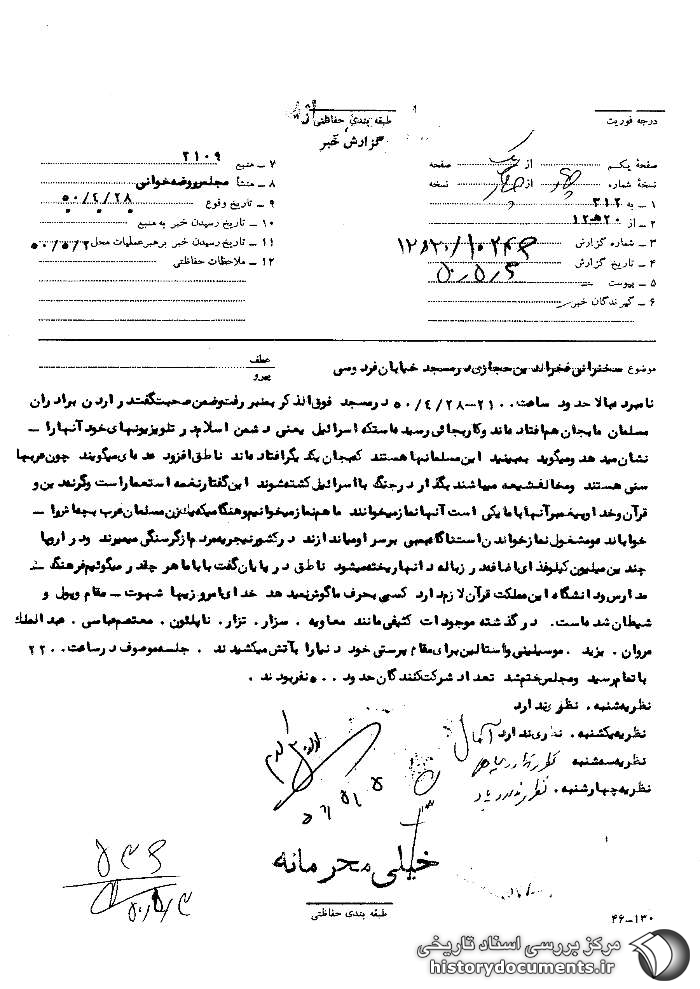 درجه فوریت
طبقه بندی حفاظتی
گزارش خبر
صفحهٔ یکم از یک صفحه
نسخهٔ شماره از نسخه
۱ ـ به ۳۱۲
۲ ـ از ۱۲ ه ۲۰
۳ ـ شماره گزارش ۱۰۲۴۶/
۴ ـ تاریخ گزارش ۵۰٫۵٫۳
۵ ـ پیوست
۶ ـ گیرندگان خبر
۷ ـ منبع ۲۱۰۹
۸ ـ منشأ مجلس روضه خوانی
۹ ـ تاریخ وقوع ۵۰/۴/۲۸
۱۰ ـ تاریخ رسیدن خبر به منبع
۱۱ ـ تاریخ رسیدن خبر برهبر عملیات محل ۵۰/۵/۲
۱۲ ـ ملاحظات حفاظتی
موضوع سخنرانی فخرالدین حجازی در مسجد خیابان فردوسی
عطف
پیرو
نامبرده بالا حدود ساعت ۲۱۰۰ـ ۵۰/۴/۲۸ در مسجد فوق الذکر بمنبر رفت وضمن صحبت گفت در اردن برادران
مسلمان ما بجان هم افتاده اند و کار بجائی رسیده است که اسرائیل یعنی دشمن اسلام در تلویزیونهای خود آنها را ـ
نشان میدهد و میگوید ببینید این مسلمانها هستند که بجان یکدیگر افتاده اند ناطق افزود عده ای میگویند چون عربها
سنی هستند و مخالف شیعه میباشند بگذار در جنگ با اسرائیل کشته شوند این گفتار نغمه استعمار است وگرنه دین و
قرآن و خدا و پیغمبر آنها با ما یکی است آنها نماز میخوانند ما هم نماز میخوانیم و هنگامیکه یک زن مسلمان عرب بچه اش را ـ
خوابانده و مشغول نماز خواندن است ناگاه بمبی بر سر او میاندازند در کشور نیجریه مردم از گرسنگی میمیرند و در اروپا
چندین میلیون کیلو غذای اضافه در زباله دانها ریخته میشود ناطق در پایان گفت بابا ما هر چقدر میگوئیم فرهنگ ـ
مدارس و دانشگاه این مملکت قرآن لازم دارد کسی بحرف ما گوش نمیدهد خدای امروزیها شهوت ـ مقام و پول و
شیطان شده است. در گذشته موجودات کثیفی مانند معاویه. سزار. تزار. ناپلئون. معتصم عباسی. عبدالملک
مروان. یزید. موسیلینی و استالین برای مقام پرستی خود دنیا را بآتش میکشیدند. جلسه موصوف در ساعت ۲۲۰۰
باتمام رسید و مجلس ختم شد تعداد شرکت کنندگان حدود نفر بودند.
نظریه شنبه. نظری ندارد
نظریه یکشنبه. نظری ندارد
نظریه سه شنبه
نظریه چهارشنبه. نظری ندارد
خیلی محرمانه
طبقه بندی حفاظتی
۵۴۶
۴۶-۱۳۰
مرکز بررسی اسناد تاریخی
historydocuments.ir